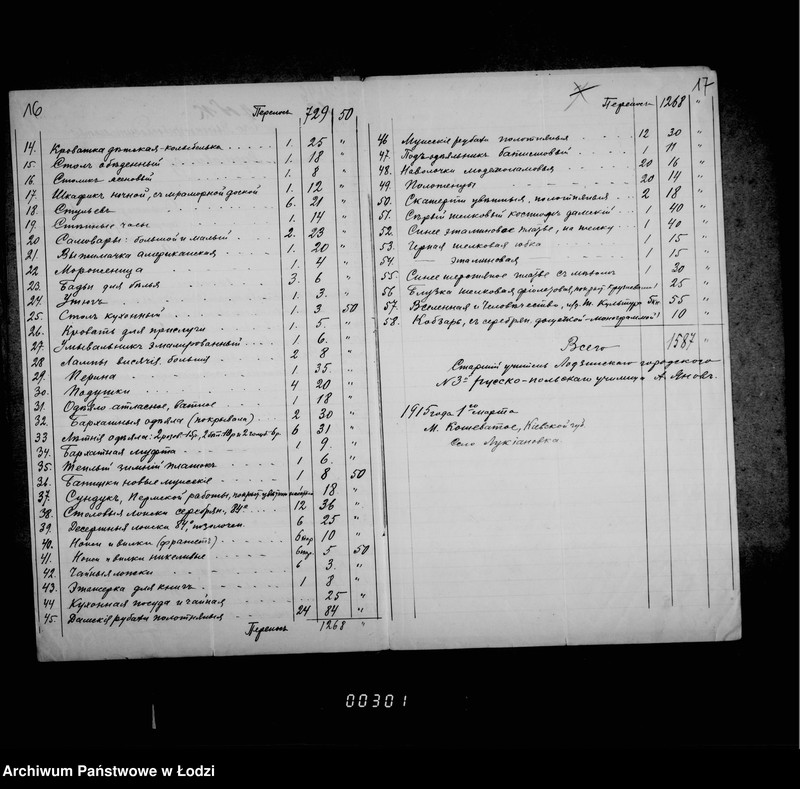 16
Перенос 729 50
14. Кроватка дѣтская-колыбелька 1. 25 "
15. Столъ обѣденный 1. 18 "
16. Столикъ ясеновый 1. 8 "
17. Шкафикъ ночной, съ мраморной доской 1. 12 "
18. Стульевъ 6. 21 "
19. Стѣнные часы 1. 14 "
20. Самовары: большой и малый 2. 23 "
21. Выжималка американская 1. 20 "
22. Мороженица 1. 4 "
23. для бѣлья 3. 6 "
24. Утюгъ 1. 3. "
25. Столъ кухонный 1. 3. 50
26. Кровать для прислуги 1. 5. "
27. Умывальникъ эмалированный 1. 6. "
28. Лампы висячія большія 2 8 "
29. Перина 1. 35 "
30. Подушки 4 20 "
31. Одѣяло атласное, ватное 1 18 "
32. Бархатныя одѣяла (покрывала) 2 30 "
33 Лѣтнія одѣяла: 6 31 "
34. Бархатная муфта 1 9. "
35. Теплый зимній платокъ 1 6. "
36. новые мужскіе 1 8 50
37. Сундукъ, Пермской работы, 18 "
38. Столовыя ложки серебрян. 84° 12 36 "
39. Десертныя ложки 84° позолочен. 6 25 "
40. Ножи и вилки (фражетъ) 10 "
41. Ножи и вилки никелевые 5 50
42. Чайныя ложки 6 3. "
43. Этажерка для книгъ 1 8 "
44 Кухонная посуда и чайная 25 "
45. Дамскія рубахи полотняныя 24 84 "
Переносъ 1268 "
17
Переносъ 1268 "
46 Мужскія рубахи полотняныя 12 30 "
47. Пододѣяльникъ батистовый 1 11 "
48. Наволочки мадеполамовыя 20 16 "
49. Полотенцы 20 14 "
50. Скатерти цвѣтныя, полотняныя 2 18 "
51. Сѣрый шелковый костюмъ дамскій 1 40 "
52. Синее эталиновое платье, на шелку 1 40 "
53. Черная шелковая юбка 1 15 "
54. — эталиновая 1 15 "
55. Синее шерстяное платье съ 1 30 "
56 Блузка шелковая фіолетовая, 25 "
57. Вселенная и Человѣчество, 55 "
58. Кобзарь, съ серебрян. монограммой 1 10 "
Всего 1587 "
Старшій учитель Лодзинскаго городского
№ 3го русско-польскаго училища А. Яновъ.
1915 года 1го марта
М. Кошеватое, Кіевской губ.
Село Лукіановка.
00301
Archiwum Państwowe w Łodzi